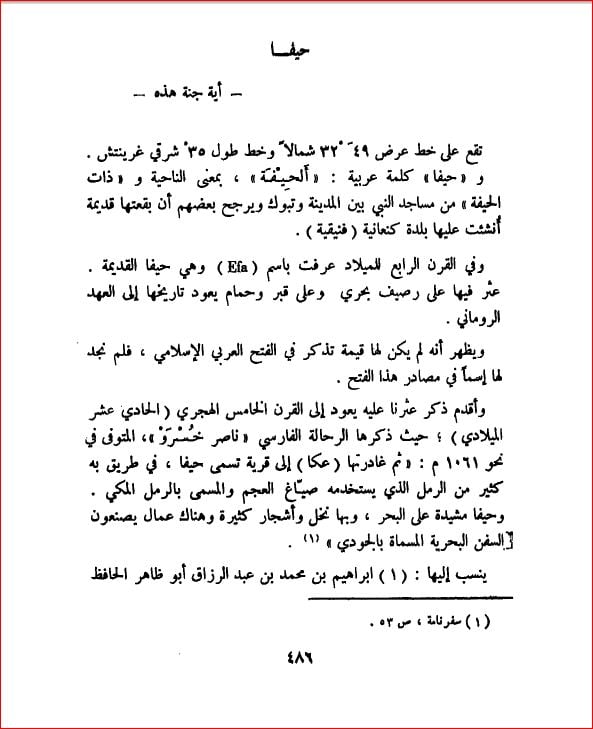 حيفــا
– أية جنة هذه –
تقع على خط عرض ٤٩َ ٣٢ْ شمالاً وخط طول ٣٥ْ شرقي غرينتش .
و « حيفا » كلمة عربية : « أَلحِيْفَة » ، بمعنى الناحية و « ذات
الحيفة » من مساجد النبي بين المدينة وتبوك ويرجح بعضهم أن بقعتها قديمة
أُنشئت عليها بلدة كنعانية ( فنيقية ) .
وفي القرن الرابع للميلاد عرفت باسم ( Efa ) وهي حيفا القديمة .
عثر فيها على رصيف بحري وعلى قبر وحمام يعود تاريخها إلى العهد
الروماني .
ويظهر أنه لم يكن لها قيمة تذكر في الفتح العربي الإسلامي ، فلم نجد
لها إسماً في مصادر هذا الفتح .
وأقدم ذكر عثرنا عليه يعود إلى القرن الخامس الهجري ( الحادي عشر
الميلادي ) ؛ حيث ذكرها الرحالة الفارسي « ناصر خُسْرَوْ » ، المتوفى في
نحو ١٠٦١ م : « ثم غادرتها ( عكا ) إلى قرية تسمى حيفا ، في طريق به
كثير من الرمل الذي يستخدمه صيّاغ العجم والمسمى بالرمل المكي .
وحيفا مشيدة على البحر ، وبها نخل وأشجار كثيرة وهناك عمال يصنعون
السفن البحرية المسماة بالجودي » (١) .
ينسب إليها : ( ١ ) ابراهيم بن محمد بن عبد الرزاق أبو ظاهر الحافظ
( ١ ) سفرنامة ، ص ٥٣ .
٤٨٦